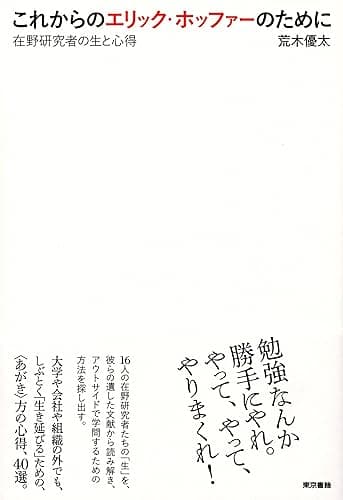 これからのエリック・ホッファーのために
在野研究者の生と心得
荒木優太
勉強なんか
勝手にやれ。
やって、やって、
やりまくれ!
16人の在野研究者たちの「生」を、
彼らの遺した文献から読み解き、
アウトサイドで学問するための
方法を探し出す。
大学や会社や組織の外でも、
しぶとく「生き延びる」ための、
〈あがき〉方の心得、40選。
東京書籍